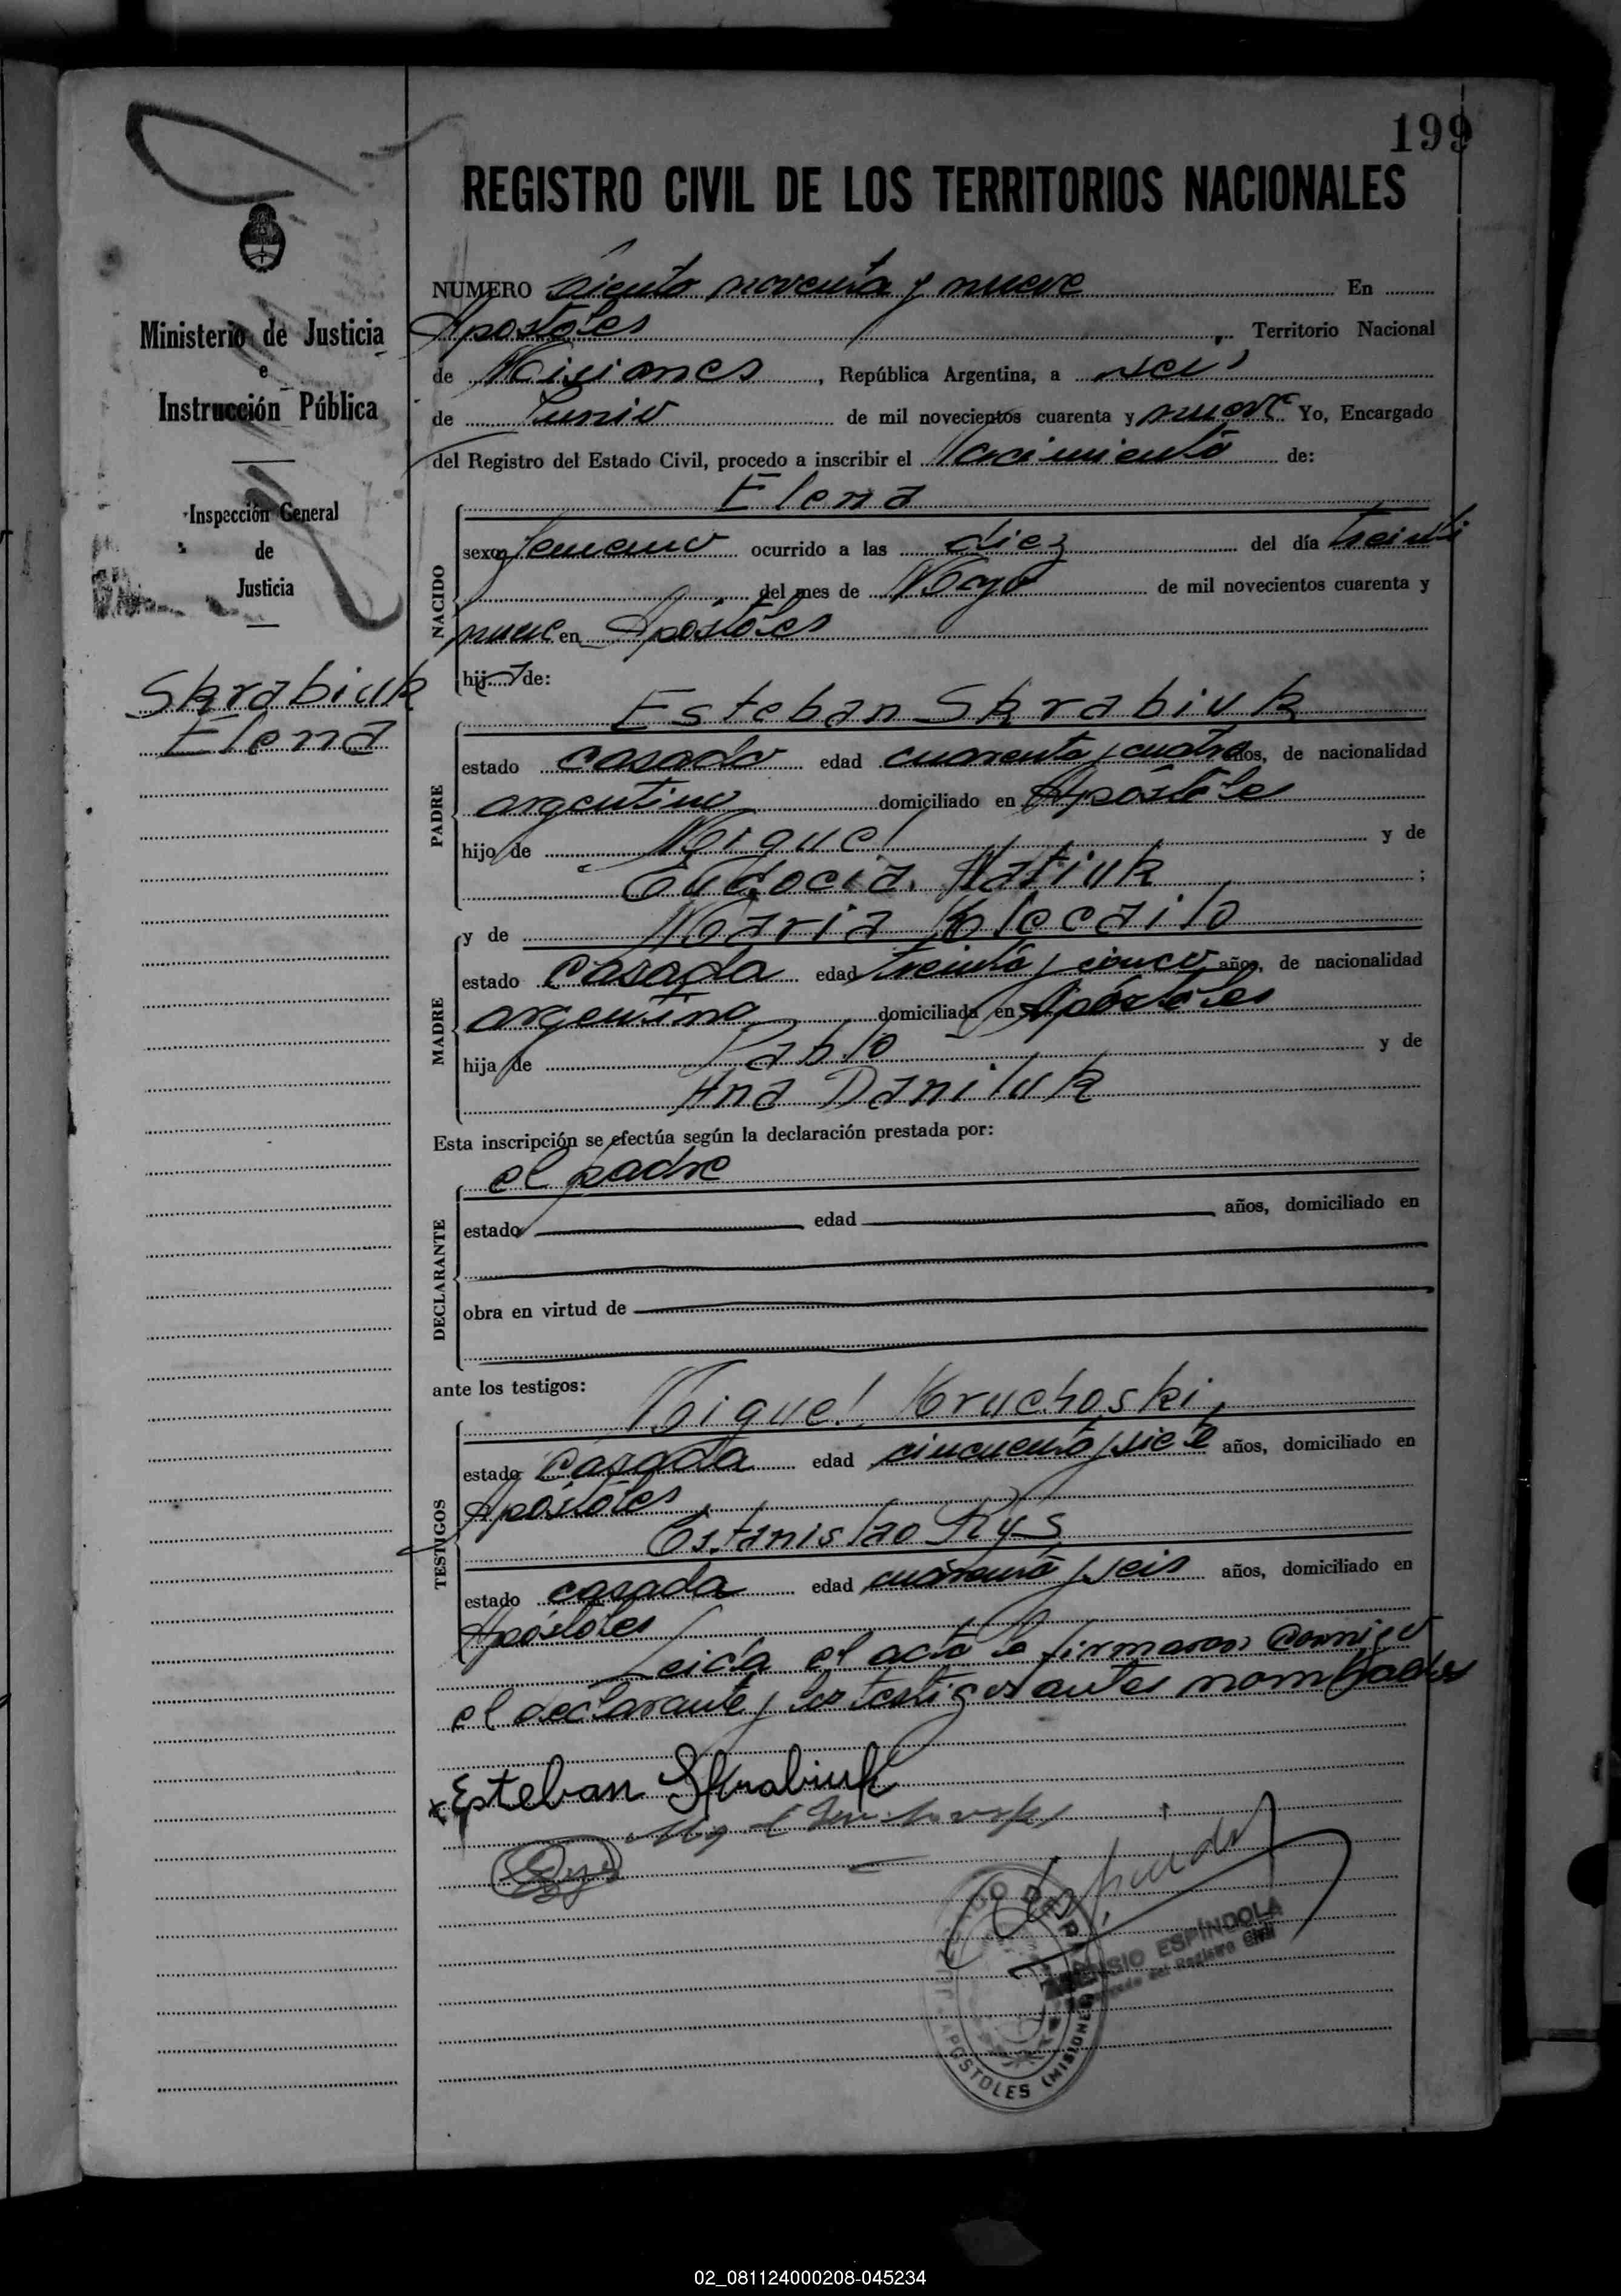 199
REGISTRO CIVIL DE LOS TERRITORIOS NACIONALES
Ministerio de Justicia
e
Instrucción Pública
Inspección General
de
Justicia
Skrabiuk
Elena
NUMERO siento noventa y nueve En
Apostoles, Territorio Nacional
de Misiones, República Argentina, a seis
de Junio de mil novecientos cuarenta y nueve Yo, Encargado
del Registro del Estado Civil, procedo a inscribir el Nacimiento de:
NACIDO
Elena
sexo femenino ocurrido a las diez del día treinta
del mes de Mayo de mil novecientos cuarenta y
nueve en Apostoles
hija de:
PADRE
Esteban Skrabiuk
estado casado edad cuarenta y cuatro años, de nacionalidad
argentino domiciliado en Apóstoles
hijo de Miguel y de
Eudocia Hatiuk;
MADRE
y de Maria Klecailo
estado casada edad treinta y cinco años, de nacionalidad
argentina domiciliada en Apóstoles
hija de Pablo y de
Ana Daniluk
Esta inscripción se efectúa según la declaración prestada por:
DECLARANTE
el padre
estado edad años, domiciliado en
obra en virtud de
ante los testigos:
TESTIGOS
Miguel Kruchoski
estado casada edad cincuenta y siete años, domiciliado en
Apóstoles
Estanislao Rys
estado casada edad cuarenta y seis años, domiciliado en
Apóstoles
Leida el acta la firmaron conmigo
el declarante y los testigos antes nombrados
x Esteban Skrabiuk
ESPÍNDOLA
Encargado del Registro Civil
APOSTOLES (MISIONES)
02_081124000208-045234